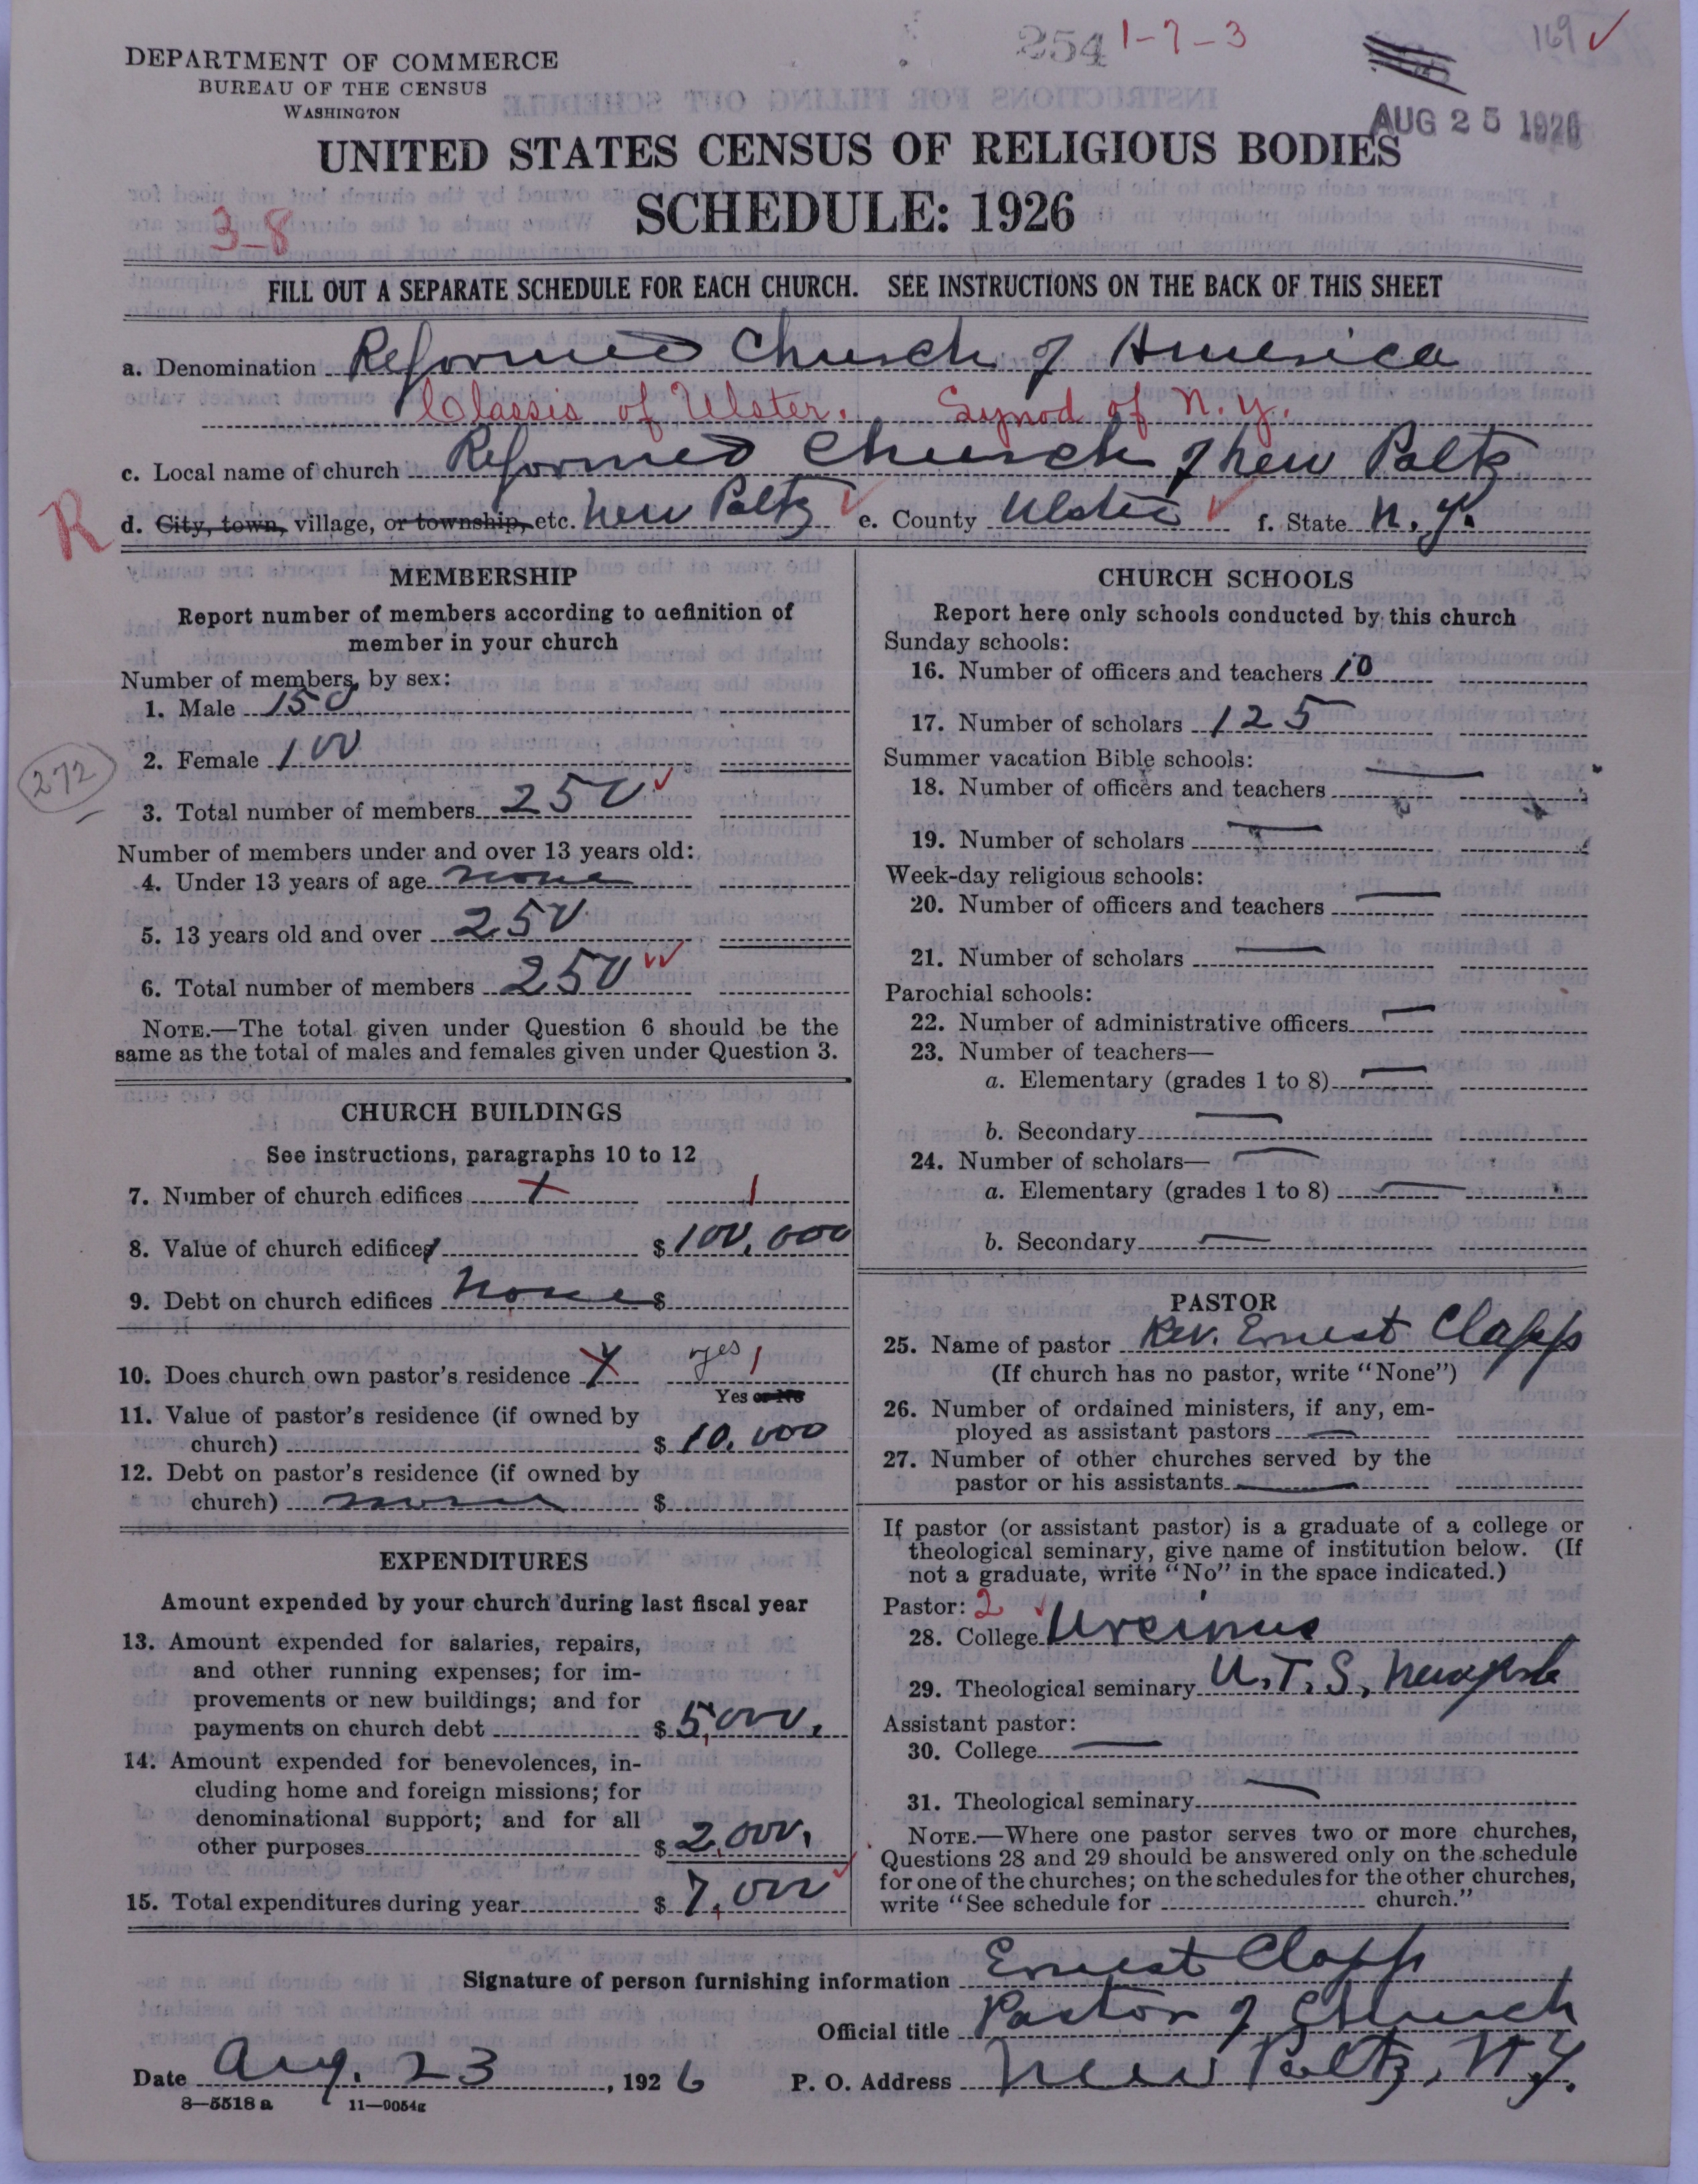 254 1-7-3
169
DEPARTMENT OF COMMERCE
BUREAU OF THE CENSUS
WASHINGTON
AUG 25 1926
UNITED STATES CENSUS OF RELIGIOUS BODIES
SCHEDULE: 1926
3-8
FILL OUT A SEPARATE SCHEDULE FOR EACH CHURCH. SEE INSTRUCTIONS ON THE BACK OF THIS SHEET
a. Denomination Reformed Church of America
Classis of Ulster. Synod of N.Y.
c. Local name of church Reformed Church of New Paltz
R
d. City, town, village, or township, etc. New Paltz e. County Ulster f. State N.Y.
MEMBERSHIP
Report number of members according to definition of
member in your church
Number of members, by sex:
1. Male 150
2. Female 100
272
3. Total number of members 250
Number of members under and over 13 years old:
4. Under 13 years of age none
5. 13 years old and over 250
6. Total number of members 250
NOTE.—The total given under Question 6 should be the
same as the total of males and females given under Question 3.
CHURCH BUILDINGS
See instructions, paragraphs 10 to 12
7. Number of church edifices 1
8. Value of church edifices $ 100,000
9. Debt on church edifices none $
10. Does church own pastor's residence yes 1
Yes or No
11. Value of pastor's residence (if owned by
church) $ 10,000
12. Debt on pastor's residence (if owned by
church) none $
EXPENDITURES
Amount expended by your church during last fiscal year
13. Amount expended for salaries, repairs,
and other running expenses; for im-
provements or new buildings; and for
payments on church debt $ 5,000.
14. Amount expended for benevolences, in-
cluding home and foreign missions; for
denominational support; and for all
other purposes $ 2,000.
15. Total expenditures during year $ 7,000
CHURCH SCHOOLS
Report here only schools conducted by this church
Sunday schools:
16. Number of officers and teachers 10
17. Number of scholars 125
Summer vacation Bible schools:
18. Number of officers and teachers
19. Number of scholars
Week-day religious schools:
20. Number of officers and teachers
21. Number of scholars
Parochial schools:
22. Number of administrative officers
23. Number of teachers—
a. Elementary (grades 1 to 8)
b. Secondary
24. Number of scholars—
a. Elementary (grades 1 to 8)
b. Secondary
PASTOR
25. Name of pastor Rev. Ernest Clapp
(If church has no pastor, write "None")
26. Number of ordained ministers, if any, em-
ployed as assistant pastors
27. Number of other churches served by the
pastor or his assistants
If pastor (or assistant pastor) is a graduate of a college or
theological seminary, give name of institution below. (If
not a graduate, write "No" in the space indicated.)
Pastor: 2
28. College Urcinus
29. Theological seminary U.T.S, New York
Assistant pastor:
30. College
31. Theological seminary
NOTE.—Where one pastor serves two or more churches,
Questions 28 and 29 should be answered only on the schedule
for one of the churches; on the schedules for the other churches,
write "See schedule for church."
Signature of person furnishing information Ernest Clapp
Official title Pastor of Church
Date Aug. 23, 1926 P. O. Address New Paltz, N.Y.
8—5518 a 11—9054g